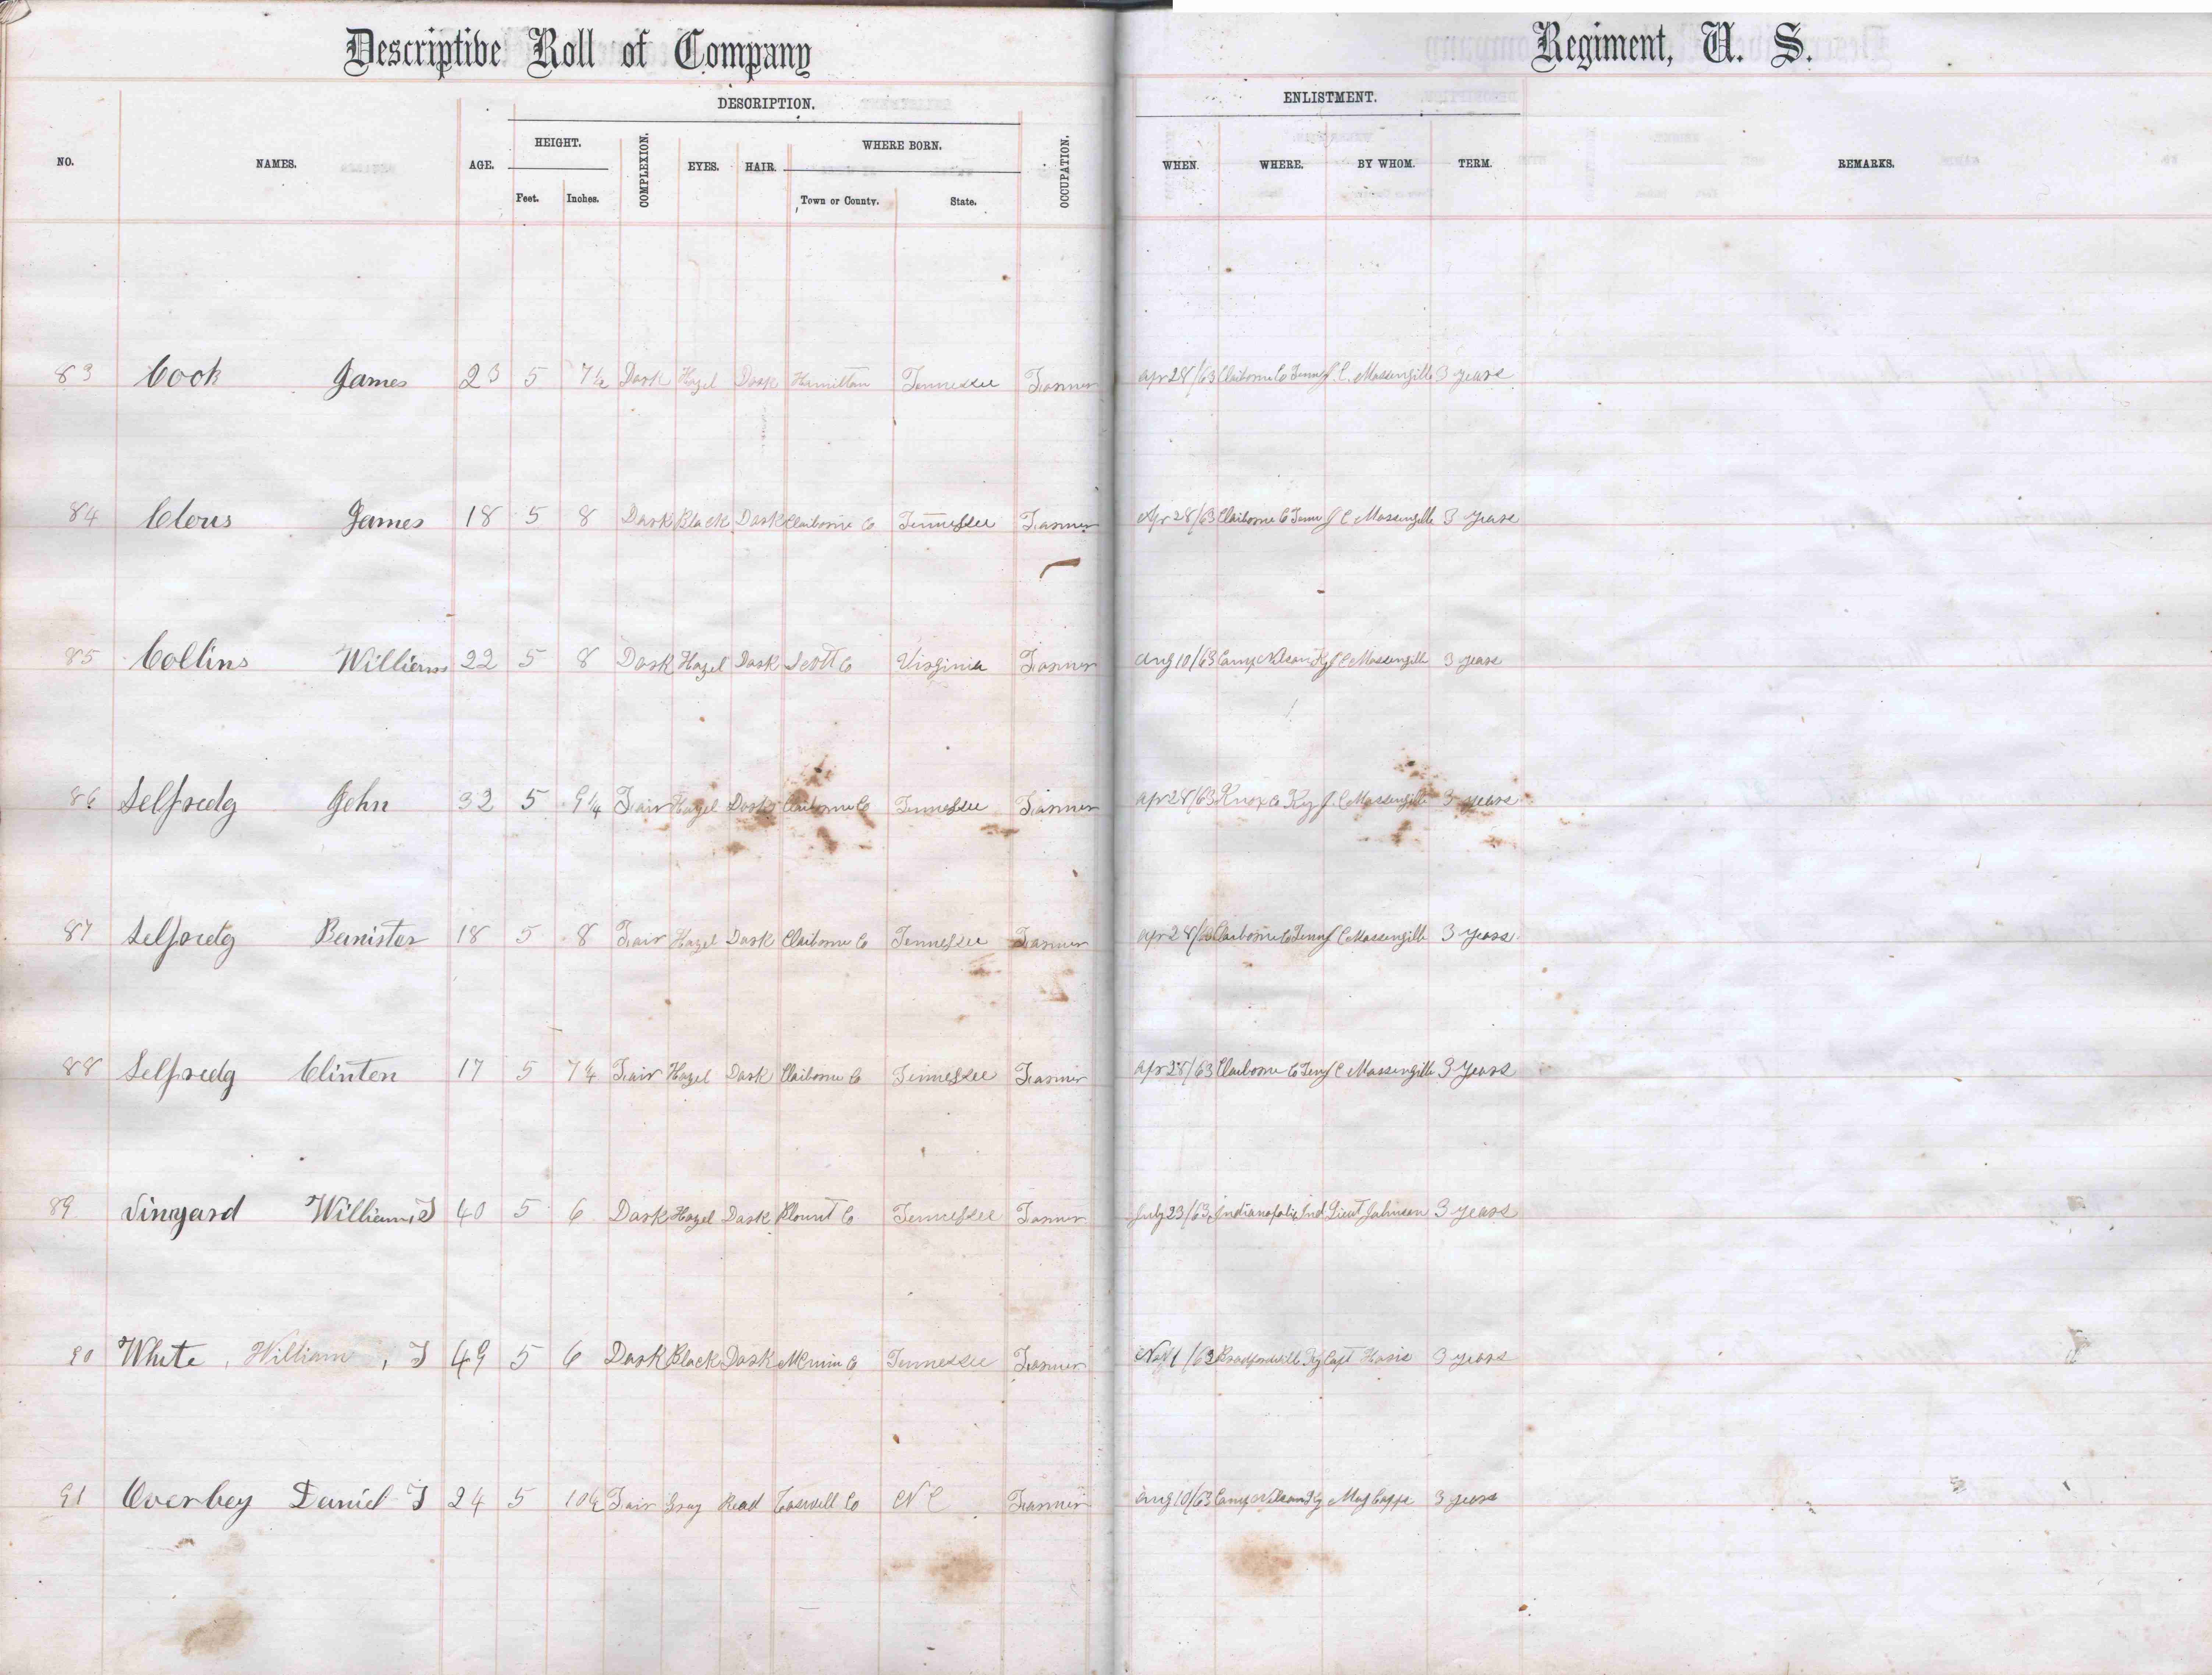 Descriptive Roll of Company Regiment, U. S.
DESCRIPTION. ENLISTMENT.
NO. NAMES. AGE. HEIGHT. Feet. Inches. COMPLEXION. EYES. HAIR. WHERE BORN. Town or County. State. OCCUPATION. WHEN. WHERE. BY WHOM. TERM. REMARKS.
83 Cook James 23 5 7½ Dark Hazel Dark Hamilton Tennessee Farmer Apr 28/63 Claiborne Co Tenn J. C. Massengille 3 years
84 James 18 5 8 Dark Black Dark Claiborne Co Tennessee Farmer Apr 28/63 Claiborne Co Tenn J C Massengille 3 years
85 Collins William 22 5 8 Dark Hazel Dark Scott Co Virginia Farmer Aug 10/63 Camp Nelson Ky J C Massengille 3 years
86 Selfredg John 32 5 9¼ Fair Hazel Dark Claiborne Co Tennessee Farmer Apr 28/63 Knox Co Ky J. C Massengille 3 years
87 Selfredg Banister 18 5 8 Fair Hazel Dark Claiborne Co Tennessee Farmer Apr 28/63 Claiborne Co Tenn J C Massengille 3 years
88 Selfredg Clinton 17 5 7¼ Fair Hazel Dark Claiborne Co Tennessee Farmer Apr 28/63 Claiborne Co Ten J C Massengille 3 years
89 Vinyard William 40 5 6 Dark Hazel Dark Blount Co Tennessee Farmer July 23/63 Indianapolis Ind Lieut Johnson 3 years
90 White, William, J 49 5 6 Dark Black Dark McMinn Co Tennessee Farmer Nov 1/63 Bradfordsville Ky Capt 3 years
91 Overbey Daniel J 24 5 10½ Fair Gray Read Caswell Co N C Farmer Aug 10/63 Camp Nelson Ky Maj 3 years